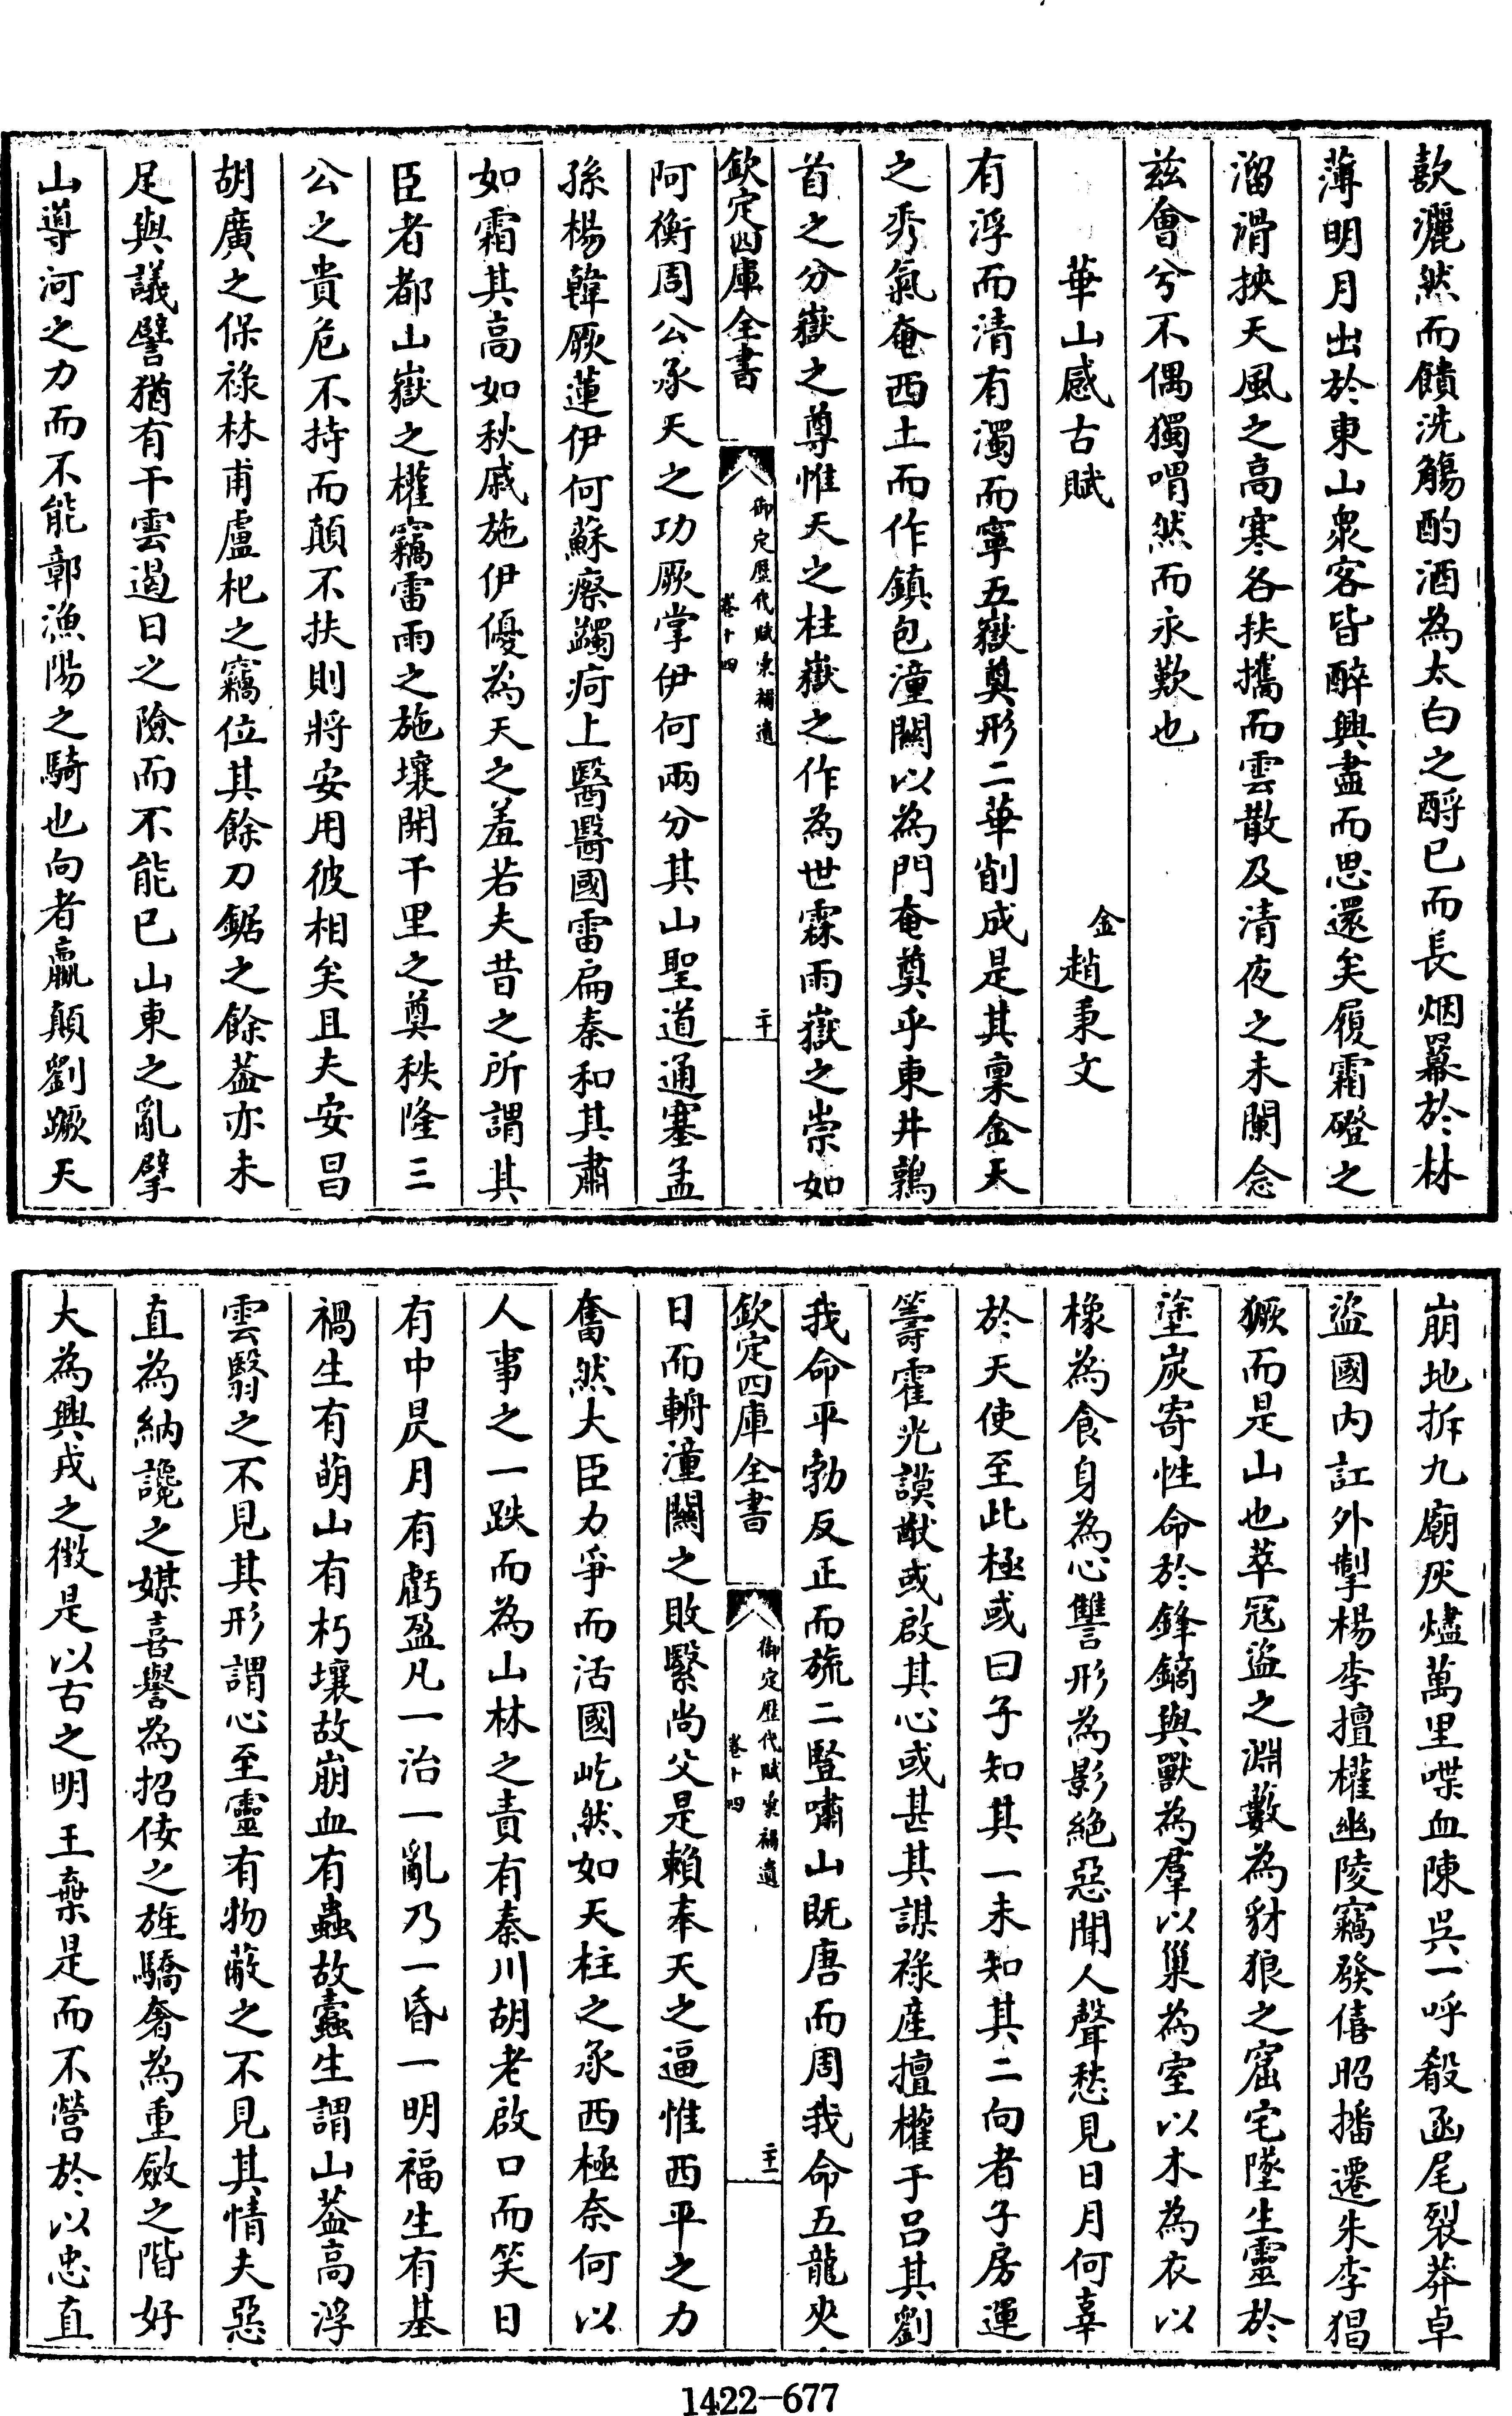 歎灑然而饋洗觴酌酒為太白之酹已而長烟羃於林
薄明月出於東山衆客皆醉興盡而思還矣履霜磴之
溜滑挾天風之高寒各扶攜而雲散及清夜之未闌念
兹會兮不偶獨喟然而永歎也
華山感古賦
金趙秉文
有浮而清有濁而寧五嶽奠形二華削成是其稟金天
之秀氣奄西土而作鎮包潼關以為門奄奠乎東井鶉
首之分嶽之尊惟天之柱嶽之作為世霖雨嶽之崇如
欽定四庫全書
御定歴代賦彙補遺
卷十四
二十
阿衡周公承天之功厥掌伊何兩分其山聖道通塞孟
孫楊韓厥蓮伊何蘇瘵蠲疴上醫醫國雷扁秦和其肅
如霜其高如秋戚施伊優為天之羞若夫昔之所謂其
臣者都山嶽之權竊雷雨之施壤開千里之奠秩隆三
公之貴危不持而顛不扶則將安用彼相矣且夫安昌
胡廣之保祿林甫盧杞之竊位其餘刀鋸之餘葢亦未
足與議譬猶有干雲遏日之險而不能已山東之亂擘
山導河之力而不能鄣漁陽之騎也向者嬴顛劉蹶天
崩地拆九廟灰燼萬里喋血陳吳一呼殽函尾裂莽卓
盜國内訌外掣楊李擅權幽陵竊發僖昭播遷朱李猖
獗而是山也萃冦盜之淵藪為豺狼之窟宅墜生靈於
塗炭寄性命於鋒鏑與獸為羣以巢為室以木為衣以
橡為食身為心讐形為影絶惡聞人聲愁見日月何辜
於天使至此極或曰子知其一未知其二向者子房運
籌霍光謨猷或啟其心或甚其謀祿產擅權于呂其劉
我命平勃反正而旒二豎嘯山既唐而周我命五龍夾
欽定四庫全書
御定歴代賦彙補遺
卷十四
二十一
日而輈潼關之敗繄尚父是賴奉天之逼惟西平之力
奮然大臣力爭而活國屹然如天柱之承西極奈何以
人事之一跌而為山林之責有秦川胡老啟口而笑日
有中昃月有虧盈凡一治一亂乃一昏一明福生有基
禍生有萌山有朽壤故崩血有蟲故蠹生謂山葢高浮
雲翳之不見其形謂心至靈有物蔽之不見其情夫惡
直為納讒之媒喜譽為招佞之旌驕奢為重斂之階好
大為興戎之徵是以古之明王棄是而不營於以忠直
1422-677